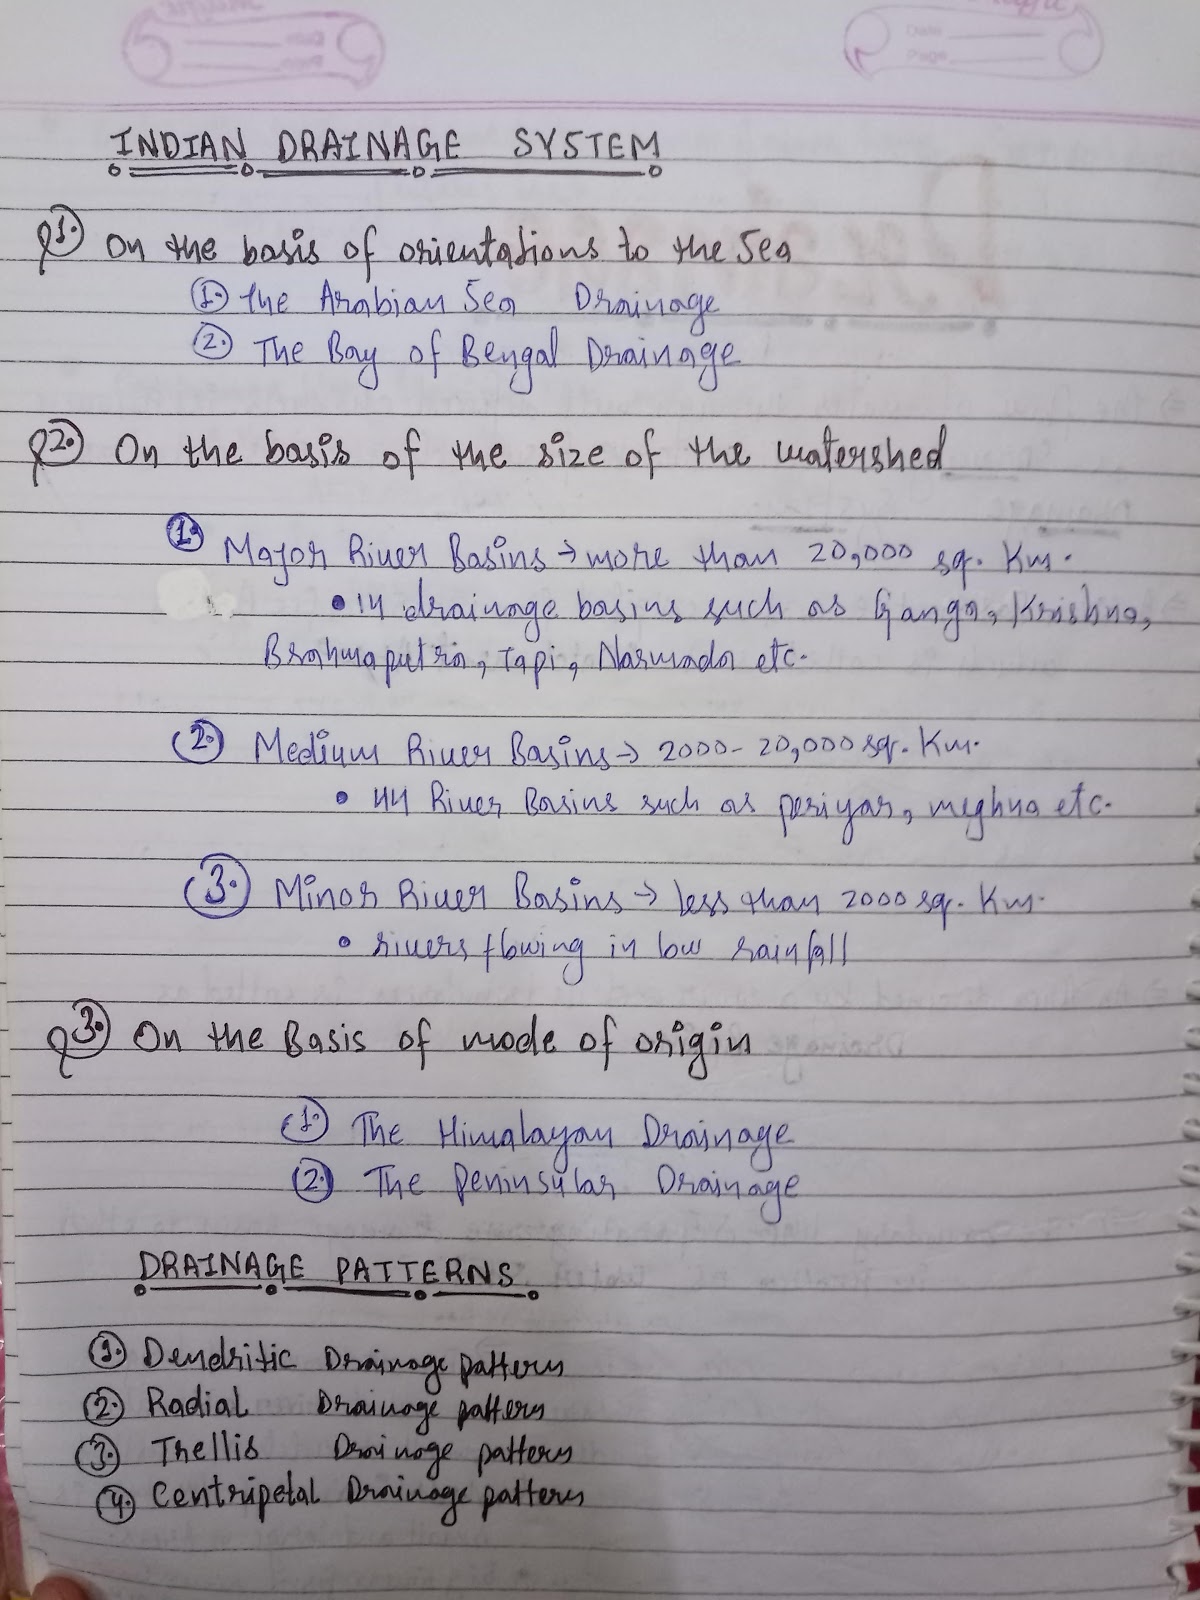 Date
Page
INDIAN DRAINAGE SYSTEM
Q1. On the basis of orientations to the Sea
1. The Arabian Sea Drainage
2. The Bay of Bengal Drainage
Q2. On the basis of the size of the watershed
1. Major River Basins → more than 20,000 sq. Km.
• 14 drainage basins such as Ganga, Krishna,
Brahmaputra, Tapi, Narmada etc.
2. Medium River Basins → 2000-20,000 sq. Km.
• 44 River Basins such as periyar, meghna etc.
3. Minor River Basins → less than 2000 sq. Km.
• rivers flowing in low rainfall
Q3. On the Basis of mode of origin
1. The Himalayan Drainage
2. The Peninsular Drainage
DRAINAGE PATTERNS
1. Dendritic Drainage pattern
2. Radial Drainage pattern
3. Trellis Drainage pattern
4. Centripetal Drainage pattern